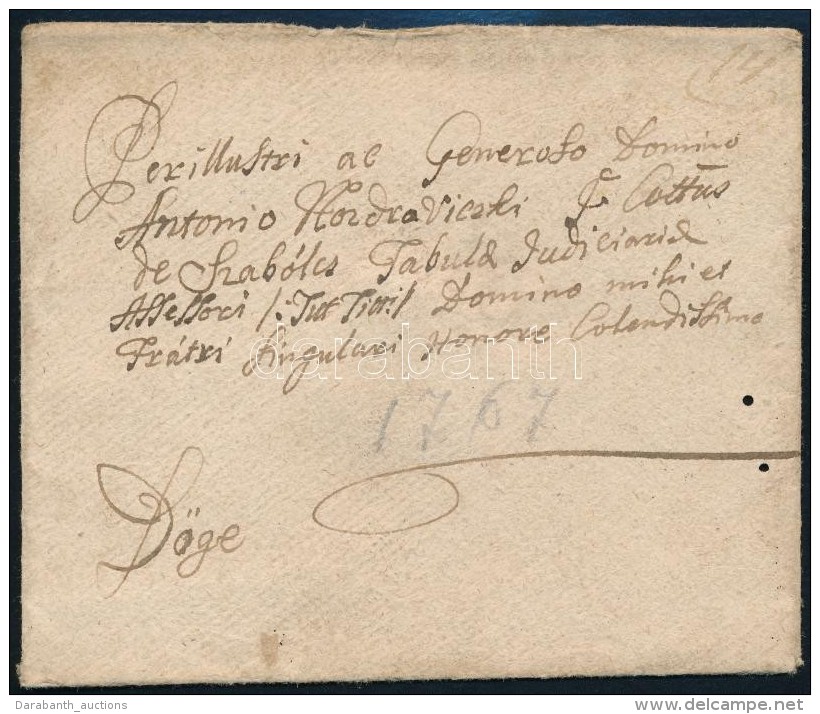 14
Perillustri ac Generoso Domino
Antonio Nozdraviczki Cottus
de Szabólcs Tabulæ Judiciariæ
Assessori /: Tit Titt :/ Domino mihi et
Frátri Singulari Honore Colendissimo
darabanth
1767
Döge
Darabanth_auctions
www.delcampe.net